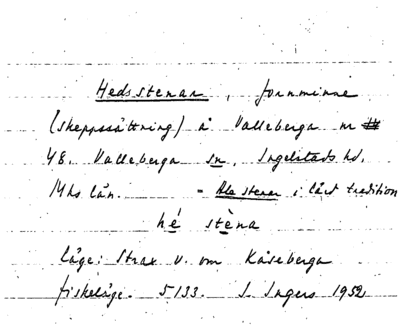 Hedsstenar, fornminne
(skeppssättning) å Valleberga nr
48. Valleberga sn, Ingelstads hd,
Mhs län. - Ale stenar i lärd tradition
hé stèna
läge: Strax v. om Kåseberga
fiskeläge. 5133. I. Ingers 1952